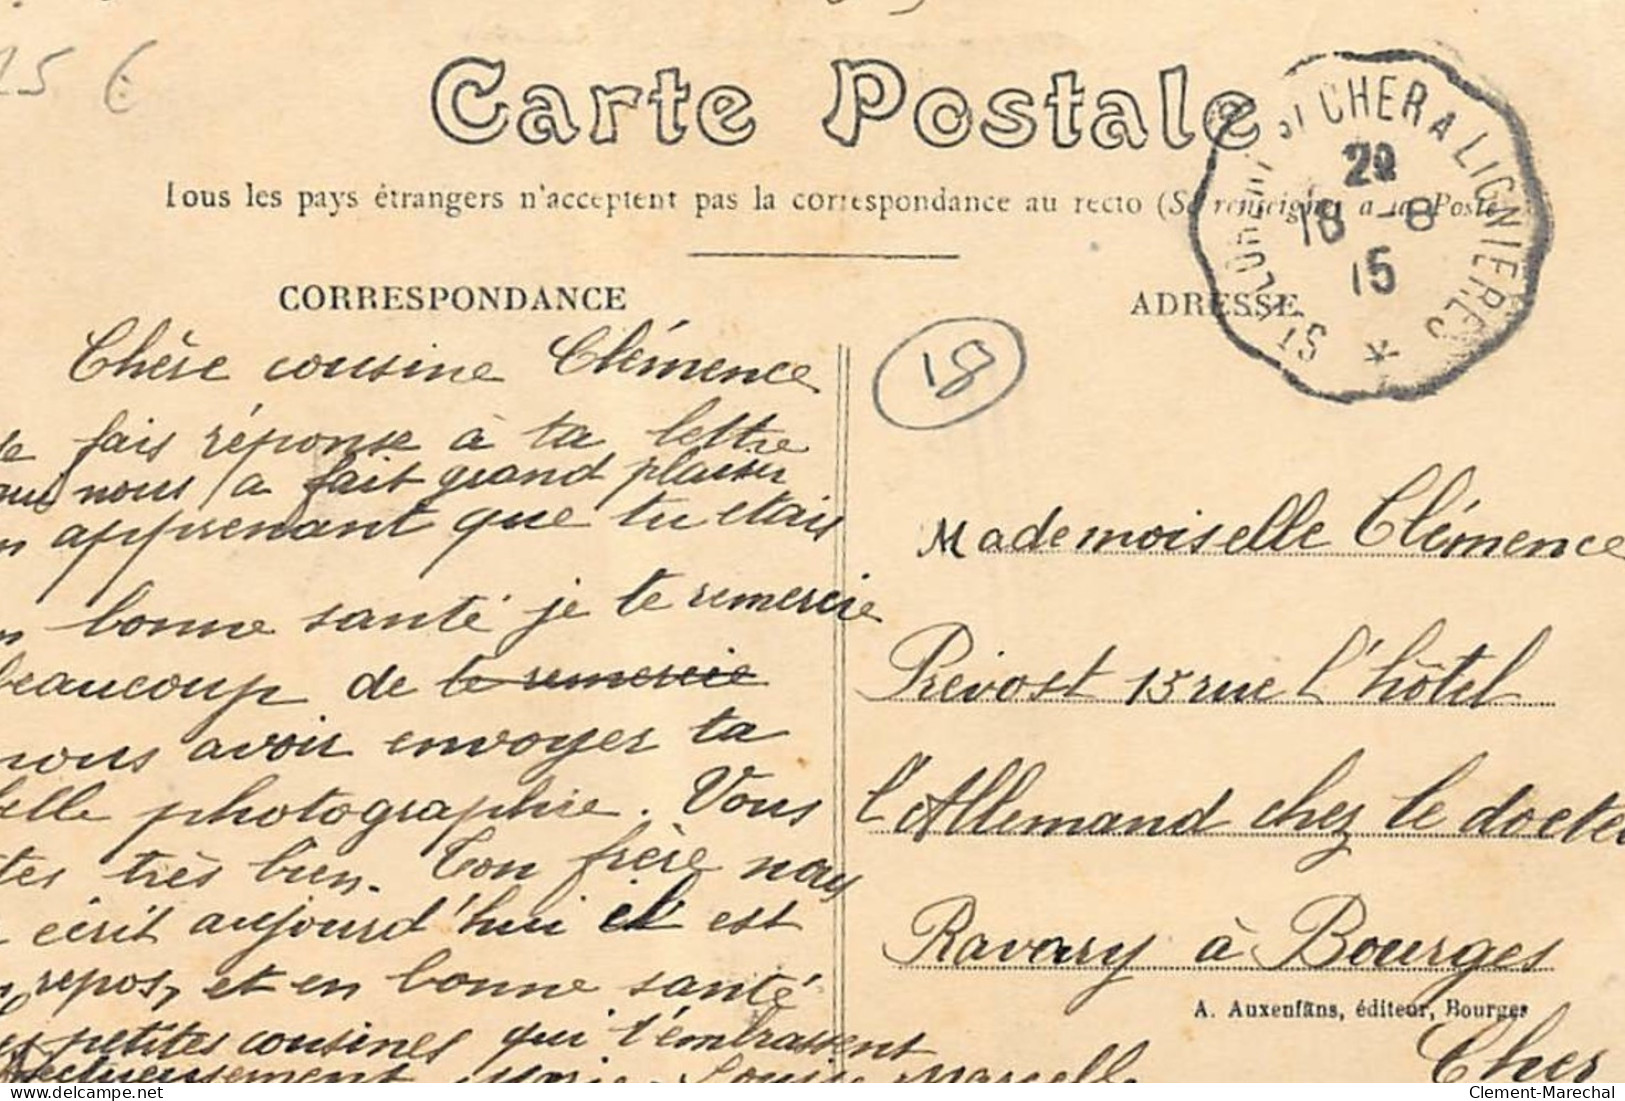 15 €
Carte Postale
Tous les pays étrangers n'acceptent pas la correspondance au recto (Se renseigner a la Poste)
ST FLORENT SI CHER A LIGNIERES
29
18 -8
15
CORRESPONDANCE
ADRESSE
18
Chère cousine Clémence
fais réponse à ta lettre
nous a fait grand plaisir
apprenant que tu etais
bonne santé je te remercie
beaucoup de te remercie
nous avoir envoyer ta
belle photographie. Vous
tes très bien. Ton frère nous
écrit aujourd'hui il est
repos, et en bonne santé
petites cousines qui t'embrassent
Marcelle
Mademoiselle Clémence
Prévost 15 rue l'hôtel
l'Allemand chez le docteu
Ravary à Bourges
A. Auxenfans, éditeur, Bourges
Cher
delcampe.net
Clement-Marechal